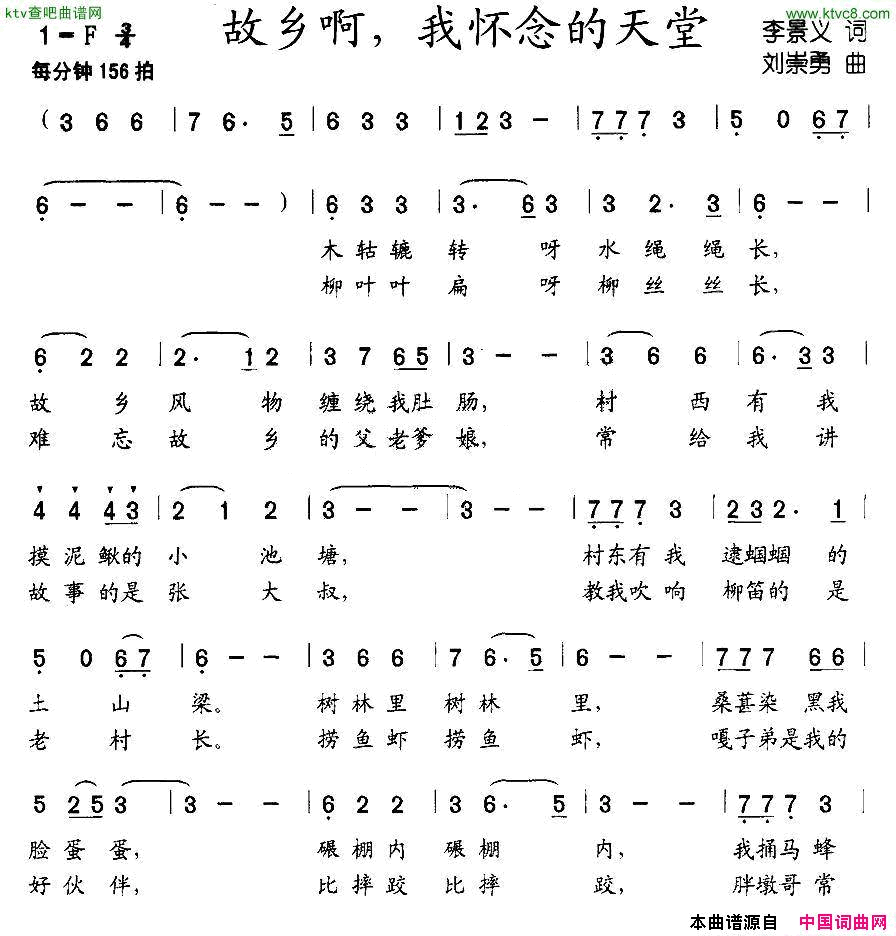 ktv查吧曲谱网
www.ktvc8.com
故乡啊，我怀念的天堂
1=F 3/4
李景义 词
每分钟156拍
刘崇勇 曲
(3 6 6 | 7 6. 5 | 6 3 3 | 1 2 3 - | 7 7 7 3 | 5 0 6 7 |
6 - - | 6 - - ) | 6 3 3 | 3. 6 3 | 3 2. 3 | 6 - - |
木轱辘转呀水绳绳长，
柳叶叶扁呀柳丝丝长，
6 2 2 | 2. 1 2 | 3 7 6 5 | 3 - - | 3 6 6 | 6. 3 3 |
故乡风物缠绕我肚肠，村西有我
难忘故乡的父老爹娘，常给我讲
4 4 4 3 | 2 1 2 | 3 - - | 3 - - | 7 7 7 3 | 2 3 2. 1 |
摸泥鳅的小池塘，村东有我逮蝈蝈的
故事的是张大叔，教我吹响柳笛的是
5 0 6 7 | 6 - - | 3 6 6 | 7 6. 5 | 6 - - | 7 7 7 6 6 |
土山梁。树林里树林里，桑葚染黑我
老村长。捞鱼虾捞鱼虾，嘎子弟是我的
5 2 5 3 | 3 - - | 6 2 2 | 3 6. 5 | 3 - - | 7 7 7 3 |
脸蛋蛋，碾棚内碾棚内，我捅马蜂
好伙伴，比摔跤比摔跤，胖墩哥常
本曲谱源自 中国词曲网